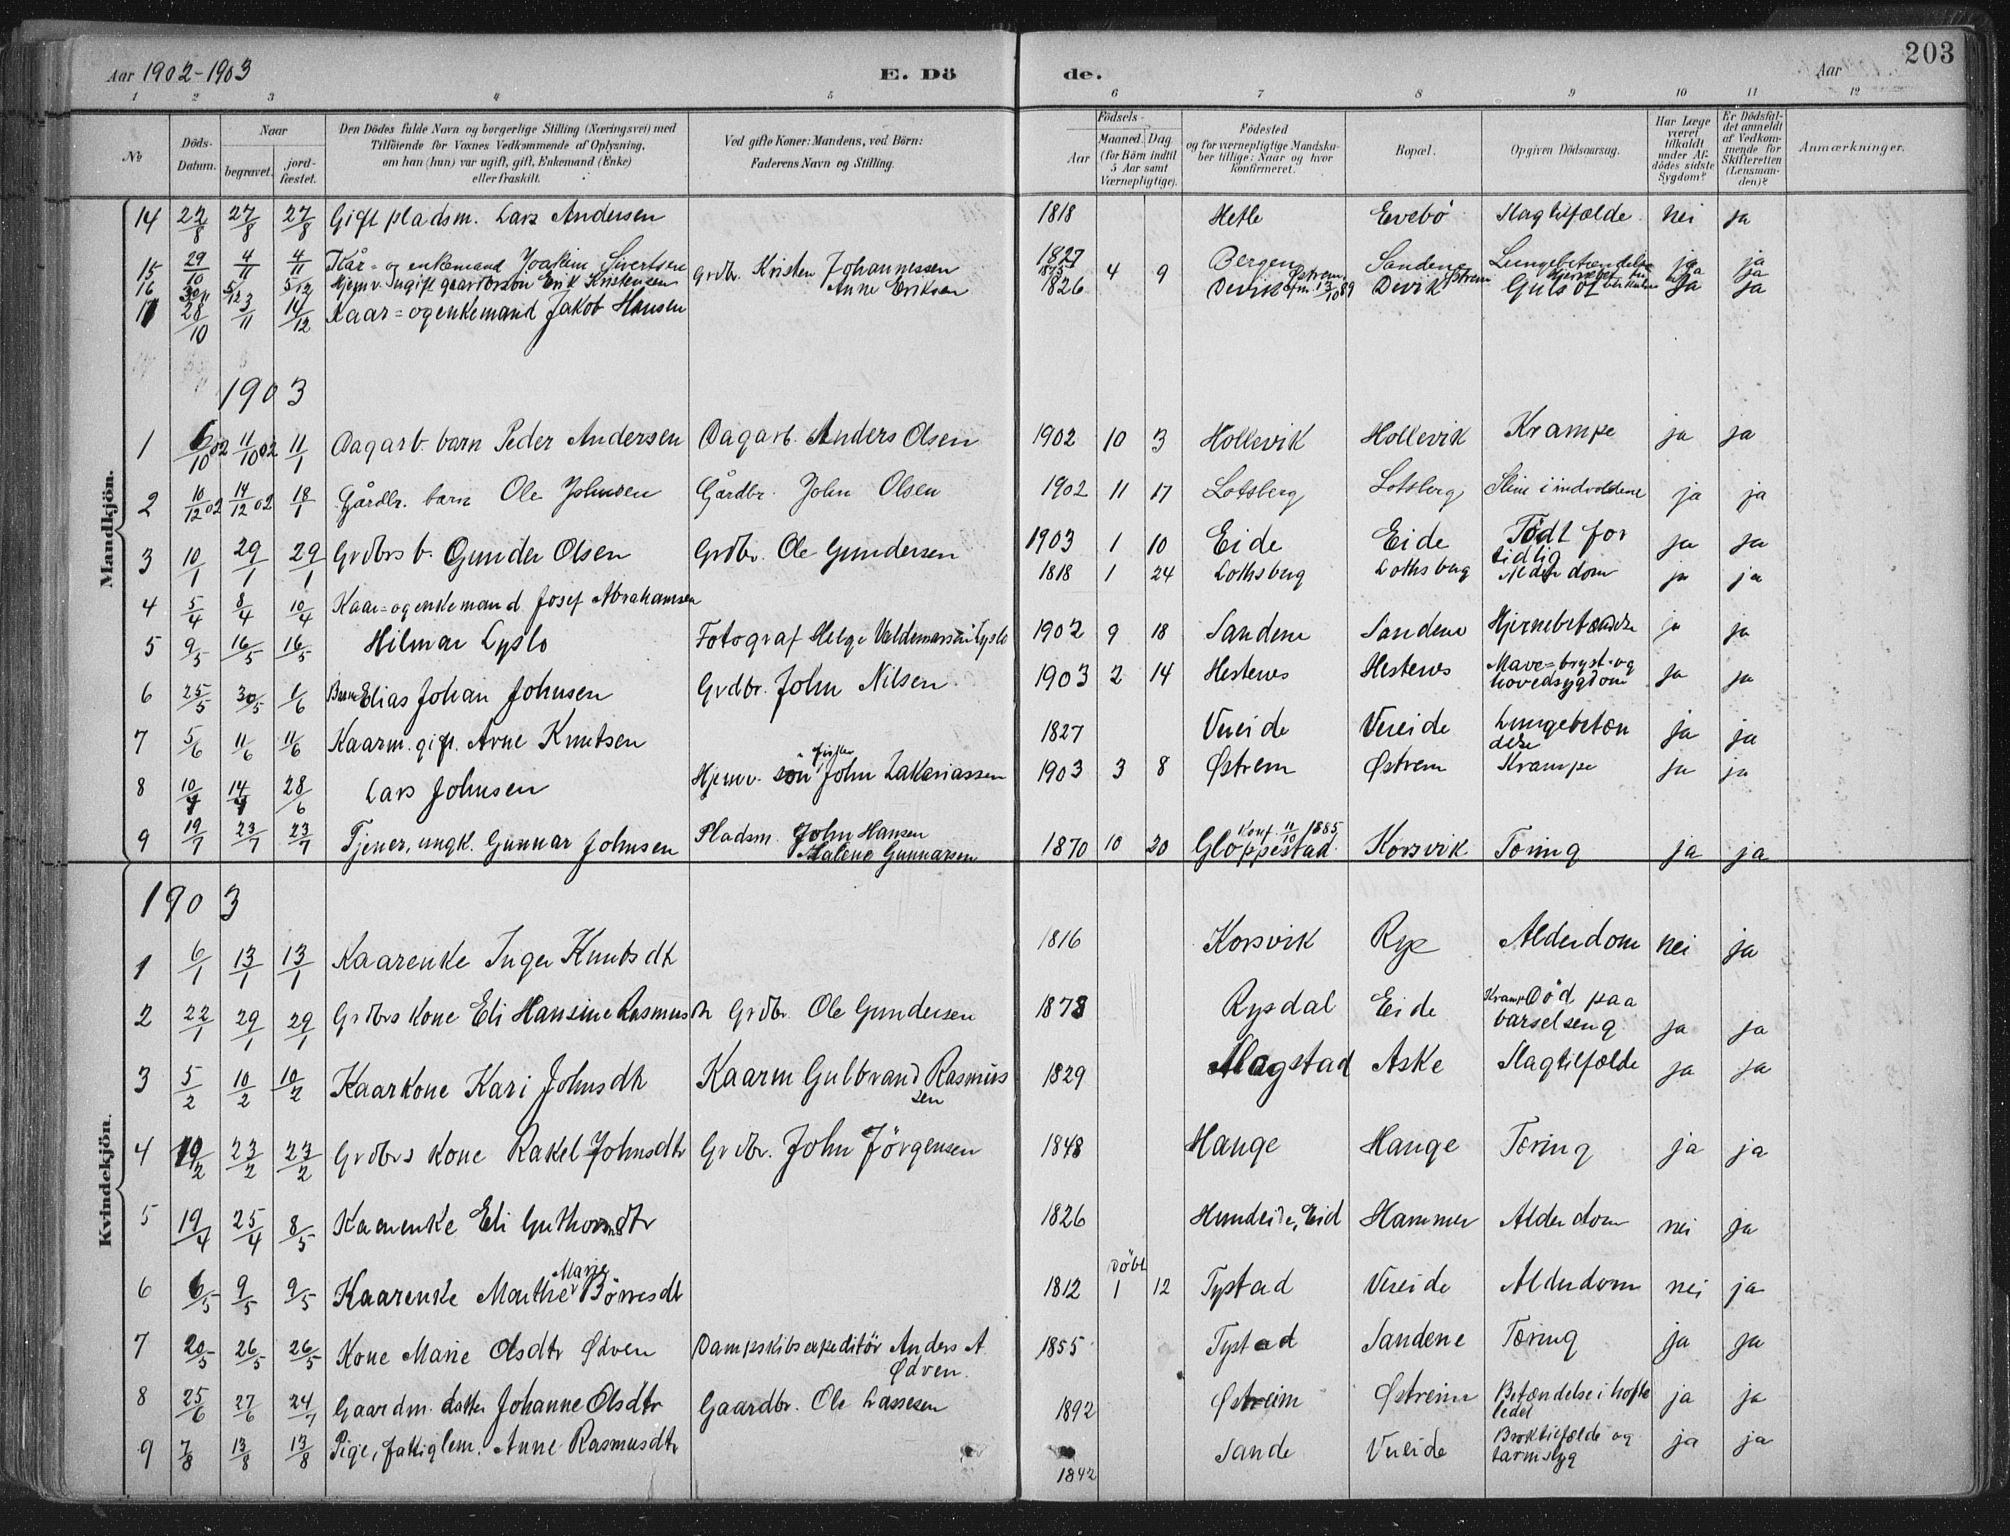 Aar 1902-1903
E. Dö
de.
Aar
203
1 2 3 4 5 6 7 8 9 10 11 12
№
Döds-Datum.
Naar
begravet.
jord-fæstet.
Den Dödes fulde Navn og borgerlige Stilling (Næringsvei) med
Tilföiende for Voxnes Vedkommende af Oplysning,
om han (hun) var ugift, gift, Enkemand (Enke)
eller fraskilt.
Ved gifte Koner: Mandens, ved Börn:
Faderens Navn og Stilling.
Födsels-
Aar
Maaned. Dag
(for Börn indtil
5 Aar samt
Værnepligtige).
Födested
og for værnepligtige Mandska-
ber tillige: Naar og hvor
konfirmeret.
Bopæl.
Opgiven Dödsaarsag.
Har Læge
været
tilkaldt
under Af-
dödes sidste
Sygdom?
Er Dödsfal-
det anmeldt
af Vedkom-
mende for
Skifteretten
(Lensman-
den)?
Anmærkninger.
Mandkjön.
14 22/8 27/8 27/8 Gift pladsm. Lars Andersen 1818 Hetle Evebö Slagtilfælde nei ja
15 29/10 4/11 4/11 Kår- og enkemand Joakim Sivertsen 1827 Bergen Sandene Lungebetændelse ja ja
16 5/12 5/12 Hjemv. ugift Erik Kristensen Grdbr. Kristen Johannessen Anne Eriksen 4 9 Östrem 13/10 89 Östrem ja ja
17 28/10 3/11 14/12 Kaar- og enkemand Jakob Hansen 1826 Devik Devik Gulsot ja ja
1903
1 6/10 02 11/10 02 11/1 Dagarb. barn Peder Andersen Dagarb. Anders Olsen 1902 10 3 Hollevik Hollevik Krampe ja ja
2 10/12 02 14/12 02 18/1 Gårdbr. barn Ole Johnsen Gårdbr. John Olsen 1902 11 17 Lotsberg Lotsberg Slim i indvoldene ja ja
3 10/1 29/1 29/1 Grdbrs b. Gunder Olsen Grdbr. Ole Gundersen 1903 1 10 Eide Eide Födt for tidlig ja ja
4 5/4 8/4 10/4 Kaar- og enkemand Josef Abrahamsen 1818 1 24 Lothsberg Lothsberg Alderdom ja ja
5 9/5 16/5 16/5 Hilmar Lyslo Fotograf Helge Valdemarsen Lyslo 1902 9 18 Sandene Sandene Hjernebetændelse ja ja
6 25/5 30/5 1/6 Barn Elias Johan Johnsen Grdbr. John Nilsen 1903 2 14 Hestenes Hestenes Mave- bryst- og hovedsygdom ja ja
7 5/6 11/6 11/6 Kaarm. gift. Arne Knutsen 1827 Vereide Vereide Lungebetændelse ja ja
8 10/4 14/4 28/6 Lars Johnsen Hjemv. sön Fisker John Zakariassen 1903 3 8 Østrem Østrem Krampe ja ja
9 19/7 23/7 23/7 Tjener, ungk. Gunnar Johnsen Pladsm. John Hansen Malene Gunnarsen 1870 10 20 Gloppestad Konf. 11/10 1885 Korsvik Tæring ja ja
Kvindekjön.
1903
1 6/1 13/1 13/1 Kaarenke Inger Knutsdtr 1816 Korsvik Rye Alderdom nei ja
2 22/1 29/1 29/1 Grdbrs kone Eli Hansine Rasmusdtr Grdbr. Ole Gundersen 1878 Rysdal Eide Krampe Död paa barselseng ja ja
3 5/2 10/2 10/2 Kaarkone Kari Johnsdtr Kaarm Gulbrand Rasmussen 1829 Slagstad Aske Slagtilfælde ja ja
4 19/2 23/2 23/2 Grdbrs kone Rakel Johnsdtr Grdbr. John Jörgensen 1848 Hauge Hauge Tæring ja ja
5 19/4 25/4 8/5 Kaarenke Eli Guthormsdtr 1826 Hundeide, Eid Hammer Alderdom nei ja
6 6/5 9/5 9/5 Kaarenke Marthe Marie Börresdtr 1812 döbt 1 12 Tystad Vereide Alderdom nei ja
7 20/5 26/5 26/5 Kone Marie Olsdtr Ödven Dampskibsexpeditör Anders A. Ödven. 1855 Tystad Sandene Tæring ja ja
8 25/6 27/6 24/7 Gaardm. datter Johanne Olsdtr Gaardbr. Ole Lassesen 1892 Østreim Østreim Betændelse i hofteledet ja ja
9 7/8 13/8 13/8 Pige, fattiglem. Anne Rasmusdtr 1842 Sande Vereide Broktilfælde og tarmslyng ja ja